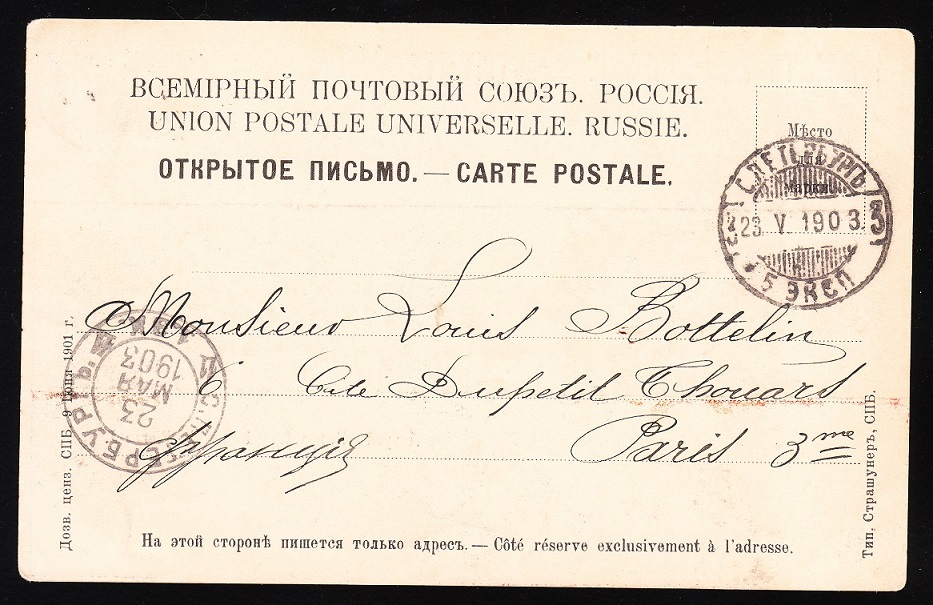 ВСЕМІРНЫЙ ПОЧТОВЫЙ СОЮЗЪ. РОССІЯ.
UNION POSTALE UNIVERSELLE. RUSSIE.
ОТКРЫТОЕ ПИСЬМО. — CARTE POSTALE.
Мѣсто
для
марки
С.ПЕТЕРБУРГЪ
23 V. 1903.
3
5 ЭКСП
Monsieur Louis Bottelin
6 Cité Dupetit Thouars
Франція Paris 3me
С.ПЕТЕРБУРГЪ
23
МАЯ
1903
Дозв. ценз. СПБ. 9 Іюня 1901 г.
Тип. Страшунеръ, СПБ.
На этой сторонѣ пишется только адресъ. — Côté réserve exclusivement à l'adresse.